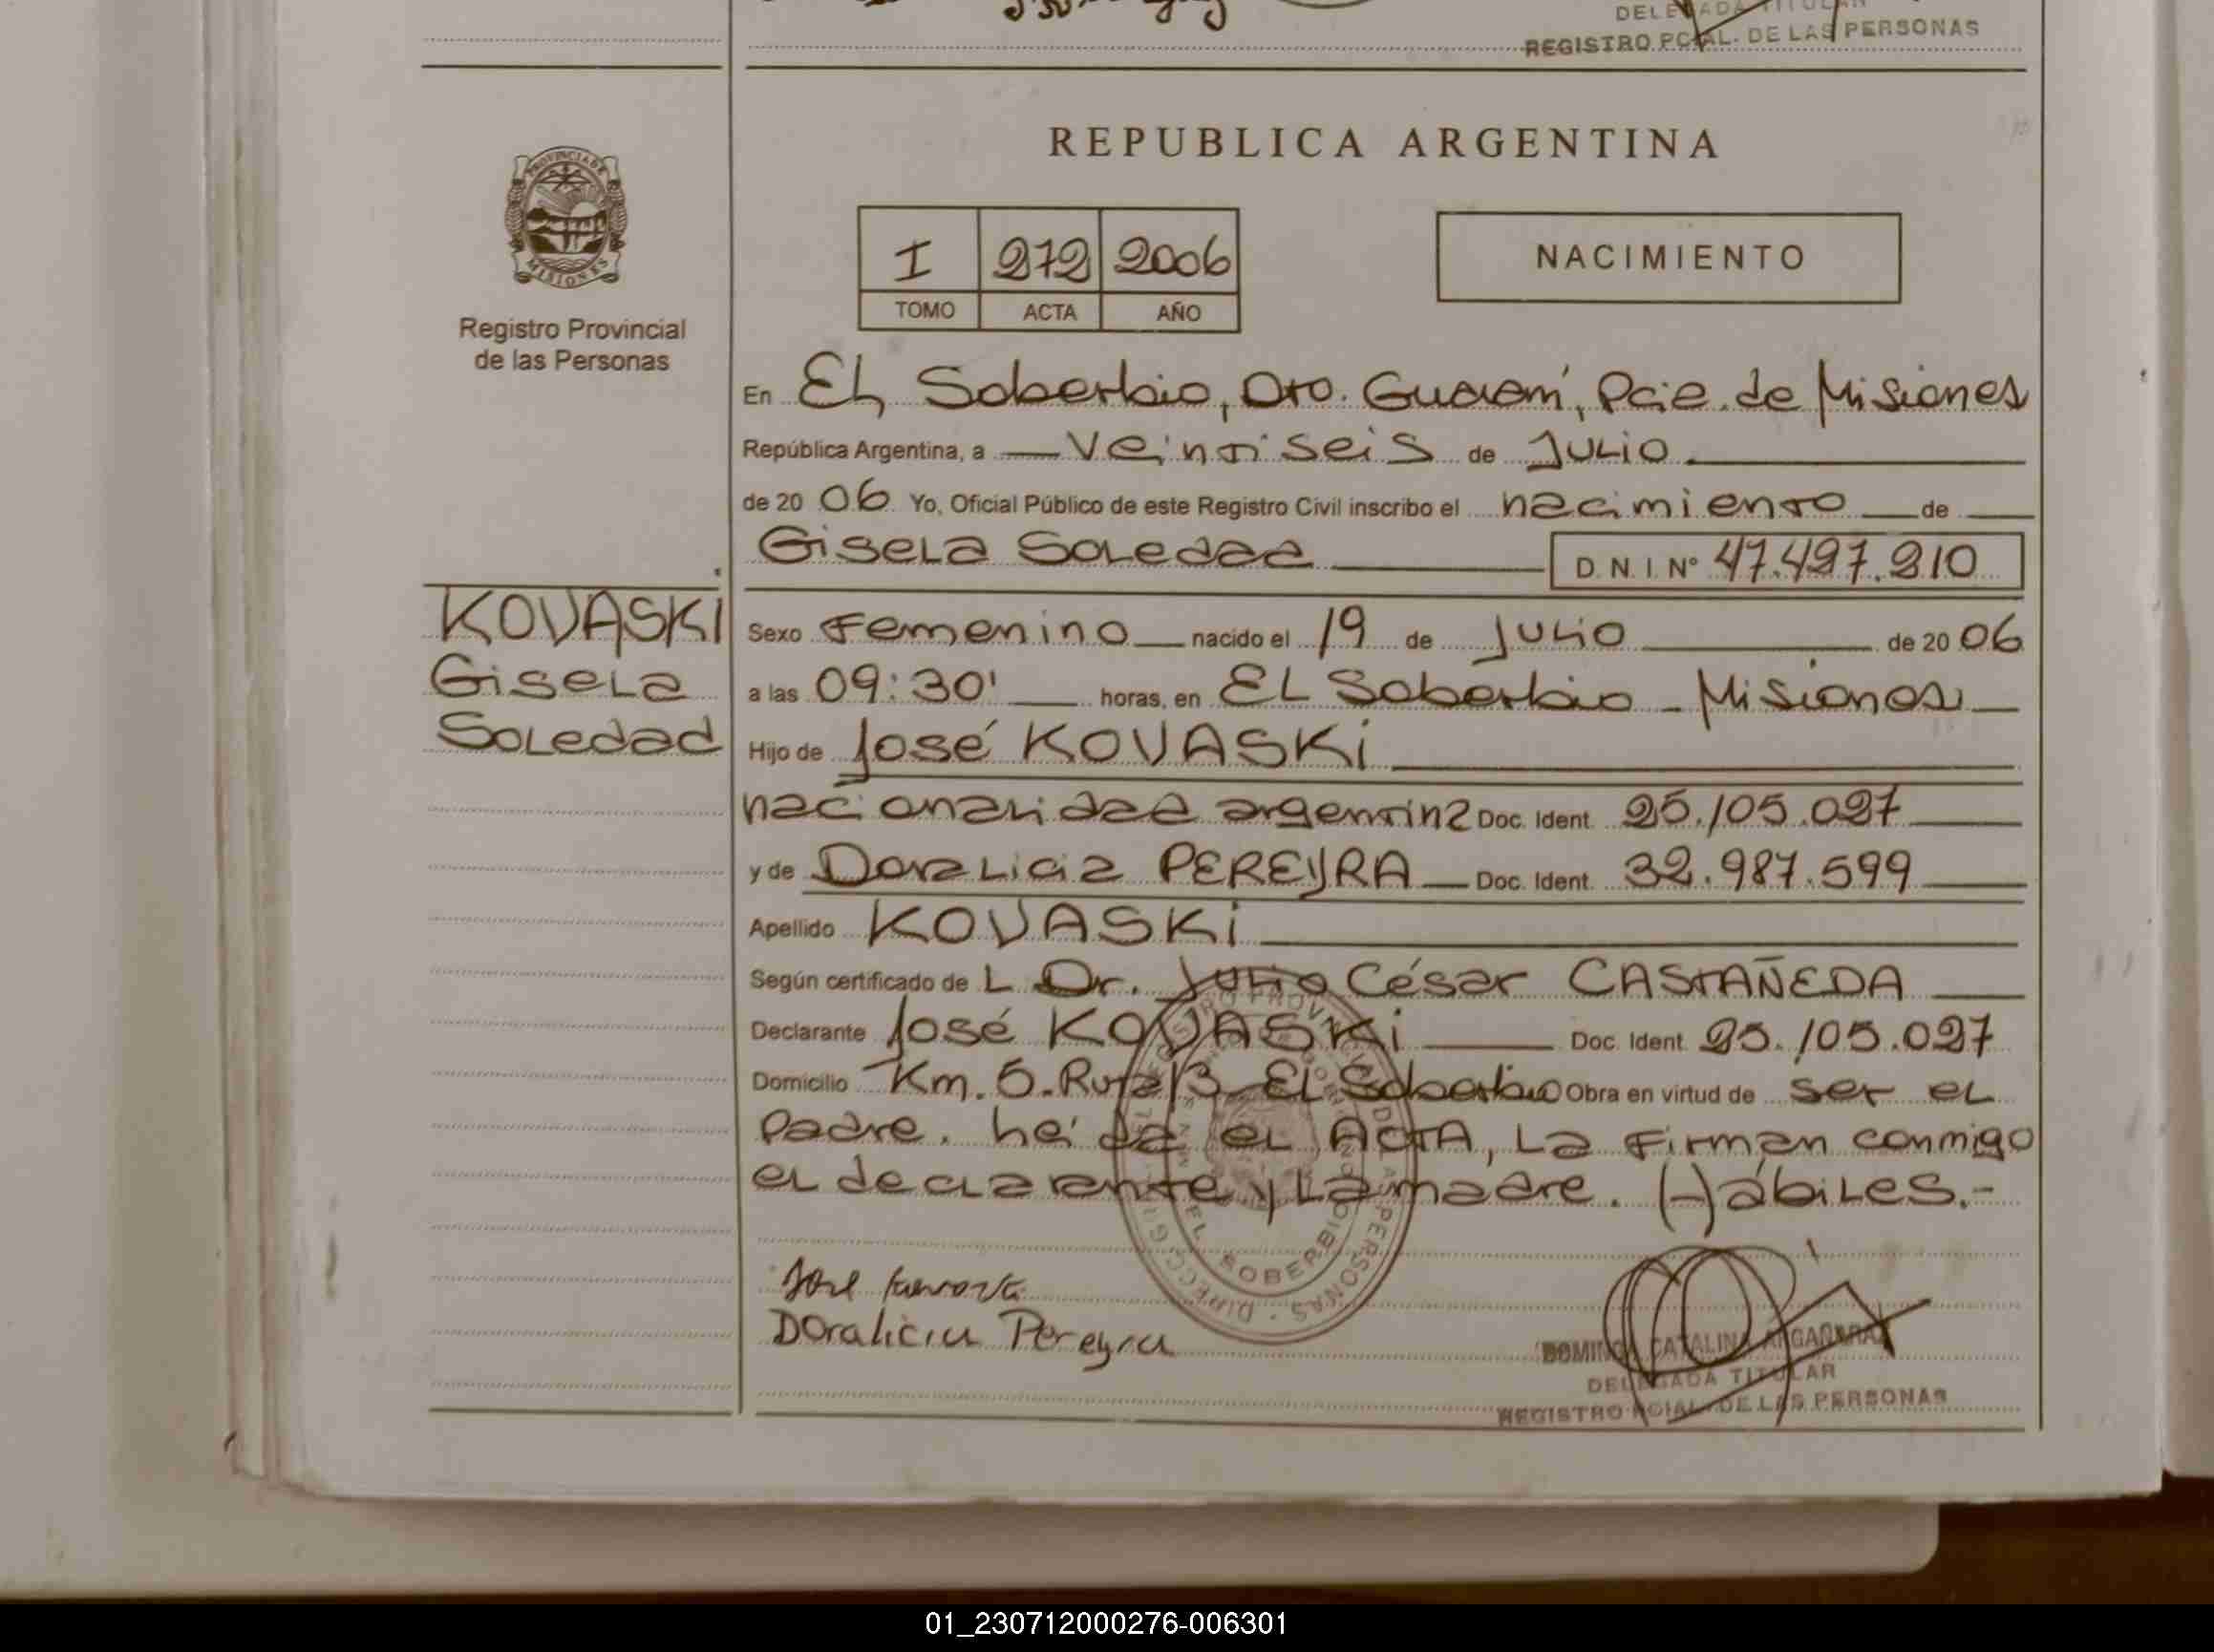 REGISTRO PCIAL. DE LAS PERSONAS
PROVINCIA DE
MISIONES
Registro Provincial
de las Personas
KOVASKI
Gisela
Soledad
REPUBLICA ARGENTINA
I 272 2006
TOMO ACTA AÑO
NACIMIENTO
En EL Soberbio, Dto. Guaraní, Pcia. de Misiones
República Argentina, a veintiseis de Julio
de 20 06 Yo, Oficial Público de este Registro Civil inscribo el nacimiento de
Gisela Soledad D. N. I. N° 47.497.210
Sexo Femenino nacido el 19 de Julio de 20 06
a las 09:30' horas, en EL Soberbio - Misiones
Hijo de José KOVASKI
nacionalidad argentina Doc. Ident. 25.105.027
y de Doralicia PEREYRA Doc. Ident. 32.987.599
Apellido KOVASKI
Según certificado de L Dr. Julio César CASTAÑEDA
Declarante José KOVASKI Doc. Ident. 25.105.027
Domicilio Km. 5. Ruta 13 EL Soberbio Obra en virtud de ser el
Padre. Leída el ACTA, La Firman conmigo
el declarante y La madre. Hábiles.-
Doralicia Pereyra
EL SOBERBIO
DOMINGA CATALINA ARGAÑARAZ
DELEGADA TITULAR
REGISTRO PCIAL. DE LAS PERSONAS
01_230712000276-006301